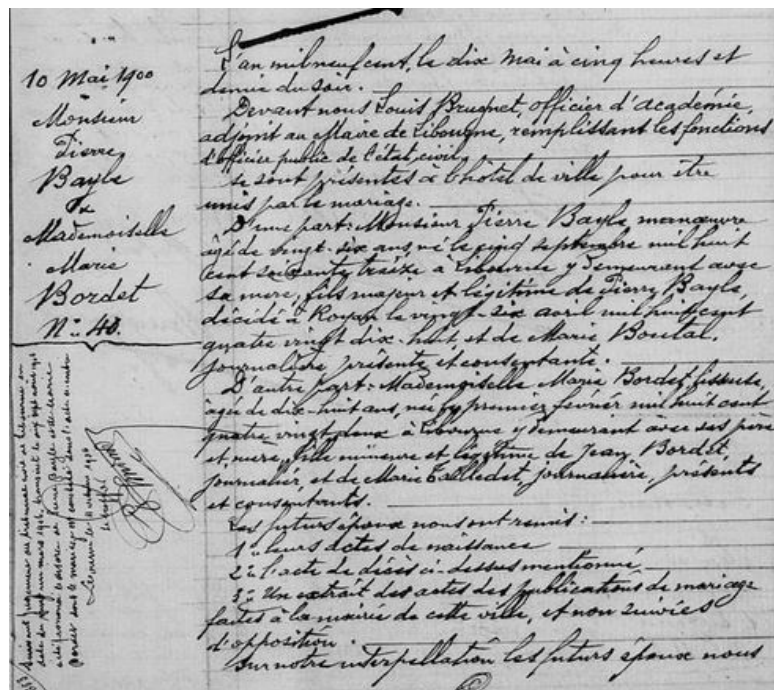 10 Mai 1900
Monsieur
Pierre
Bayle
&
Mademoiselle
Marie
Bordet
N° 40.
L'an mil neuf cent, le dix Mai à cinq heures et
demie du soir.
Devant nous Louis Brugnet, officier d'académie,
adjoint au Maire de Libourne, remplissant les fonctions
d'officier public de l'état civil,
se sont présentés à l'hôtel de ville pour être
unis par le mariage.
D'une part: Monsieur Pierre Bayle, manœuvre
âgé de vingt-six ans, né le cinq septembre mil huit
cent soixante treize à Libourne y demeurant avec
sa mère, fils majeur et légitime de Pierre Bayle,
décédé à Royan le vingt-six avril mil huit cent
quatre vingt dix-huit, et de Marie Boutal,
journalière, présente et consentante.
D'autre part: Mademoiselle Marie Bordet, lisseuse,
âgée de dix-huit ans, née le premier février mil huit cent
quatre vingt deux à Libourne y demeurant avec ses père
et mère, fille mineure et légitime de Jean Bordet,
journalier, et de Marie Tailledet, journalière, présents
et consentants.
Les futurs époux nous ont remis:
1° leurs actes de naissance
2° l'acte de décès ci-dessus mentionné.
3° Un extrait des actes des publications de mariage
faites à la mairie de cette ville, et non suivies
d'opposition.
Sur notre interpellation les futurs époux nous
Suivant jugement du tribunal civil de Libourne en
date du mars
a été prononcé le divorce de Pierre Bayle et de Marie
Bordet dont le mariage est constaté dans l'acte ci-contre
Libourne le
le greffier